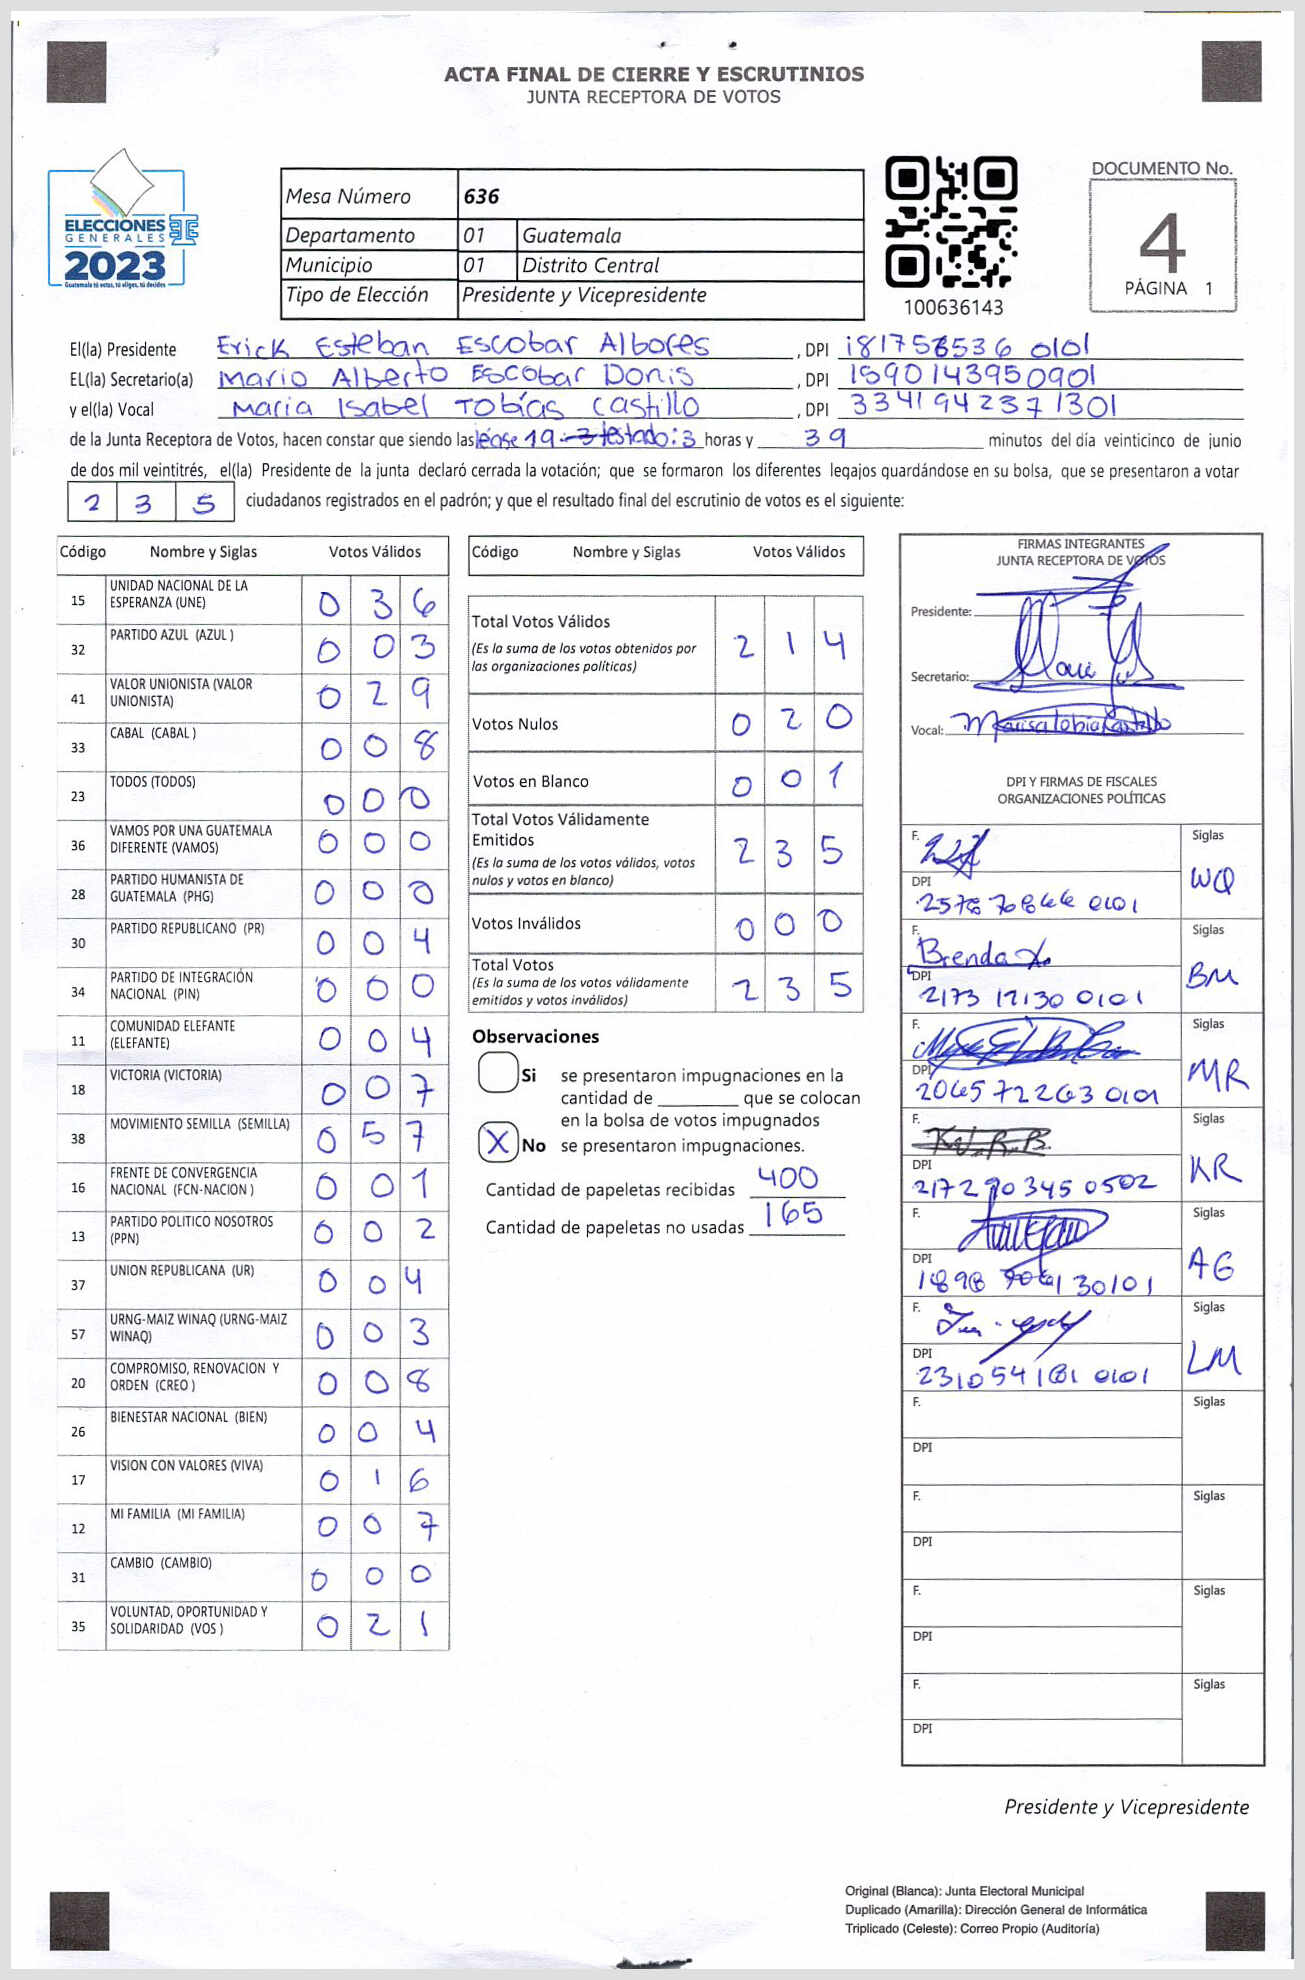 ACTA FINAL DE CIERRE Y ESCRUTINIOS
JUNTA RECEPTORA DE VOTOS
ELECCIONES
GENERALES
2023
Guatemala tú votas, tú eliges, tú decides
Mesa Número 636
Departamento 01 Guatemala
Municipio 01 Distrito Central
Tipo de Elección Presidente y Vicepresidente
100636143
DOCUMENTO No.
4
PÁGINA 1
El(la) Presidente Erick Esteban Escobar Albores, DPI 181758536 0101
EL(la) Secretario(a) Mario Alberto Escobar Donis, DPI 1590143950901
y el(la) Vocal Maria Isabel Tobías Castillo, DPI 3341942371301
de la Junta Receptora de Votos, hacen constar que siendo las léase 19 - 3 testado: 3 horas y 39 minutos del día veinticinco de junio
de dos mil veintitrés, el(la) Presidente de la junta declaró cerrada la votación; que se formaron los diferentes legajos guardándose en su bolsa, que se presentaron a votar
2 3 5 ciudadanos registrados en el padrón; y que el resultado final del escrutinio de votos es el siguiente:
Código Nombre y Siglas Votos Válidos
15 UNIDAD NACIONAL DE LA ESPERANZA (UNE) 0 3 6
32 PARTIDO AZUL (AZUL ) 0 0 3
41 VALOR UNIONISTA (VALOR UNIONISTA) 0 2 9
33 CABAL (CABAL ) 0 0 8
23 TODOS (TODOS) 0 0 0
36 VAMOS POR UNA GUATEMALA DIFERENTE (VAMOS) 0 0 0
28 PARTIDO HUMANISTA DE GUATEMALA (PHG) 0 0 0
30 PARTIDO REPUBLICANO (PR) 0 0 4
34 PARTIDO DE INTEGRACIÓN NACIONAL (PIN) 0 0 0
11 COMUNIDAD ELEFANTE (ELEFANTE) 0 0 4
18 VICTORIA (VICTORIA) 0 0 7
38 MOVIMIENTO SEMILLA (SEMILLA) 0 5 7
16 FRENTE DE CONVERGENCIA NACIONAL (FCN-NACION ) 0 0 1
13 PARTIDO POLITICO NOSOTROS (PPN) 0 0 2
37 UNION REPUBLICANA (UR) 0 0 4
57 URNG-MAIZ WINAQ (URNG-MAIZ WINAQ) 0 0 3
20 COMPROMISO, RENOVACION Y ORDEN (CREO ) 0 0 8
26 BIENESTAR NACIONAL (BIEN) 0 0 4
17 VISION CON VALORES (VIVA) 0 1 6
12 MI FAMILIA (MI FAMILIA) 0 0 7
31 CAMBIO (CAMBIO) 0 0 0
35 VOLUNTAD, OPORTUNIDAD Y SOLIDARIDAD (VOS ) 0 2 1
Código Nombre y Siglas Votos Válidos
Total Votos Válidos 2 1 4
(Es la suma de los votos obtenidos por
las organizaciones políticas)
Votos Nulos 0 2 0
Votos en Blanco 0 0 1
Total Votos Válidamente
Emitidos 2 3 5
(Es la suma de los votos válidos, votos
nulos y votos en blanco)
Votos Inválidos 0 0 0
Total Votos 2 3 5
(Es la suma de los votos válidamente
emitidos y votos inválidos)
Observaciones
Si se presentaron impugnaciones en la
cantidad de ________ que se colocan
en la bolsa de votos impugnados
X No se presentaron impugnaciones.
Cantidad de papeletas recibidas 400
Cantidad de papeletas no usadas 165
FIRMAS INTEGRANTES
JUNTA RECEPTORA DE VOTOS
Presidente:
Secretario:
Vocal:
DPI Y FIRMAS DE FISCALES
ORGANIZACIONES POLÍTICAS
F. Siglas
DPI WQ
0101
F. Brenda Siglas
DPI BM
2173 12130 0101
F. Siglas
DPI MR
2065 72263 0101
F. K.J.R.B. Siglas
DPI KR
2172 90345 0502
F. Siglas
DPI AG
1898 30101
F. Siglas
DPI LM
231054181 0101
F. Siglas
DPI
F. Siglas
DPI
F. Siglas
DPI
F. Siglas
DPI
Presidente y Vicepresidente
Original (Blanca): Junta Electoral Municipal
Duplicado (Amarilla): Dirección General de Informática
Triplicado (Celeste): Correo Propio (Auditoría)